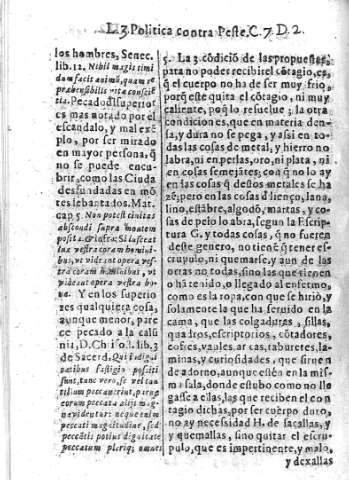 L.3. Politica contra Peste. C. 7. D. 2.
los hombres, Senec.
lib. 12. Nihil magis timi
dum facit animũ, quam re
præhensibilis vitæ consciẽ
tia. Pecado dl superior
es mas notado por el
escandalo, y mal exẽ
plo, por ser mirado
en mayor persona, q̃
no se puede encu-
brir, como las Ciuda
des fundadas en mõ
tes lebantados. Mat.
cap 5. Non potest ciuitas
abscondi supra montem
posita. & infra: Sic luceat
lux vestra coram homini-
bus, vt videant opera ves-
tra coram hominibus, vt
videant opera vestra bo
na. Y en los superio
res qualquiera cosa,
aunque menor, pare
ce pecado a la calũ
nia, D. Chriso. l. lib. 3
de Sacerd. Qui in digni
tatibus fastigio positi
sunt, tanc vero, se vel tan
tillum peccauerint, purp
eorum peccata alijs mag-
na videntur: neque enim
peccati magnitudine, sed
peccãtis potius dignitate
peccatum pleriq; omnes
5. La 3. cõdiciõ de las propuestas,
para no poder recibir el cõtagio, es,
q̃ el cuerpo no ha de ser muy frio,
porq̃ este quita el cõtagio, ni muy
caliente, porq̃ lo resuelue; la otra
condicion es, que en materia den-
sa, y dura no se pega, y assi en to-
das las cosas de metal, y hierro no
labra, ni en perlas, oro, ni plata, ni
en cosas semejãtes; con q̃ no lo ay
en las cosas q̃ destos metales se ha
zẽ; pero en las cosas d lienço, lana,
lino, estãbre, algodõ, martas, y co-
sas de pelo lo abia, segun la Escrip
tura G. y todas cosas, q̃ no fueren
deste genero, no tienẽ q̃ tener es-
crupulo, ni quemarse, y aun de las
otras no todas, sino las que tienen
o ha tenido, o llegado al enfermo,
como es la ropa, con que se hirió, y
solamente la que ha seruido en la
cama, que las colgaduras, sillas,
quadros, escriptorios, cõtadores,
cofres, vajillas, arcas, taburetes, la-
minas, y curiosidades, que siruen
de adorno, aunque estẽn en la mis-
ma sala, donde estubo como no lle
gasse a ellas, las que reciben el con
tagio dichas, por ser cuerpo duro,
no ay necesidad H. de sacallas, y
y quemallas, sino quitar el escru-
pulo, que es impertinente, y malo,
y dexallas